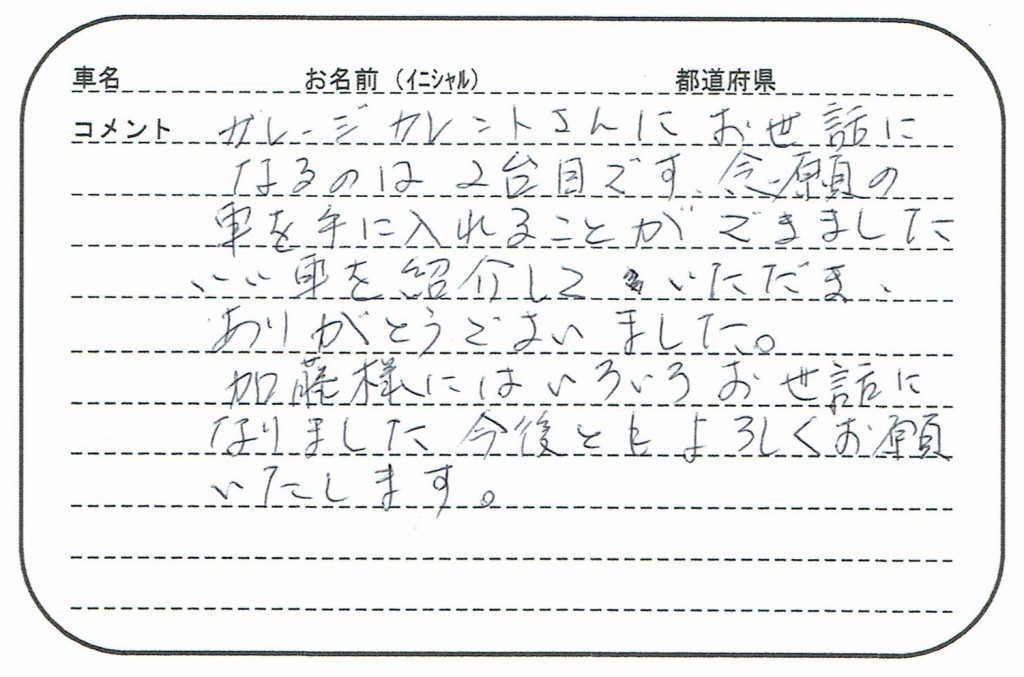 車名 お名前（イニシャル） 都道府県
コメント ガレージカレントさんにお世話に
なるのは2台目です、念願の
車を手に入れることができました
いい車を紹介していただき、
ありがとうございました。
加藤様にはいろいろお世話に
なりました今後ともよろしくお願
いたします。